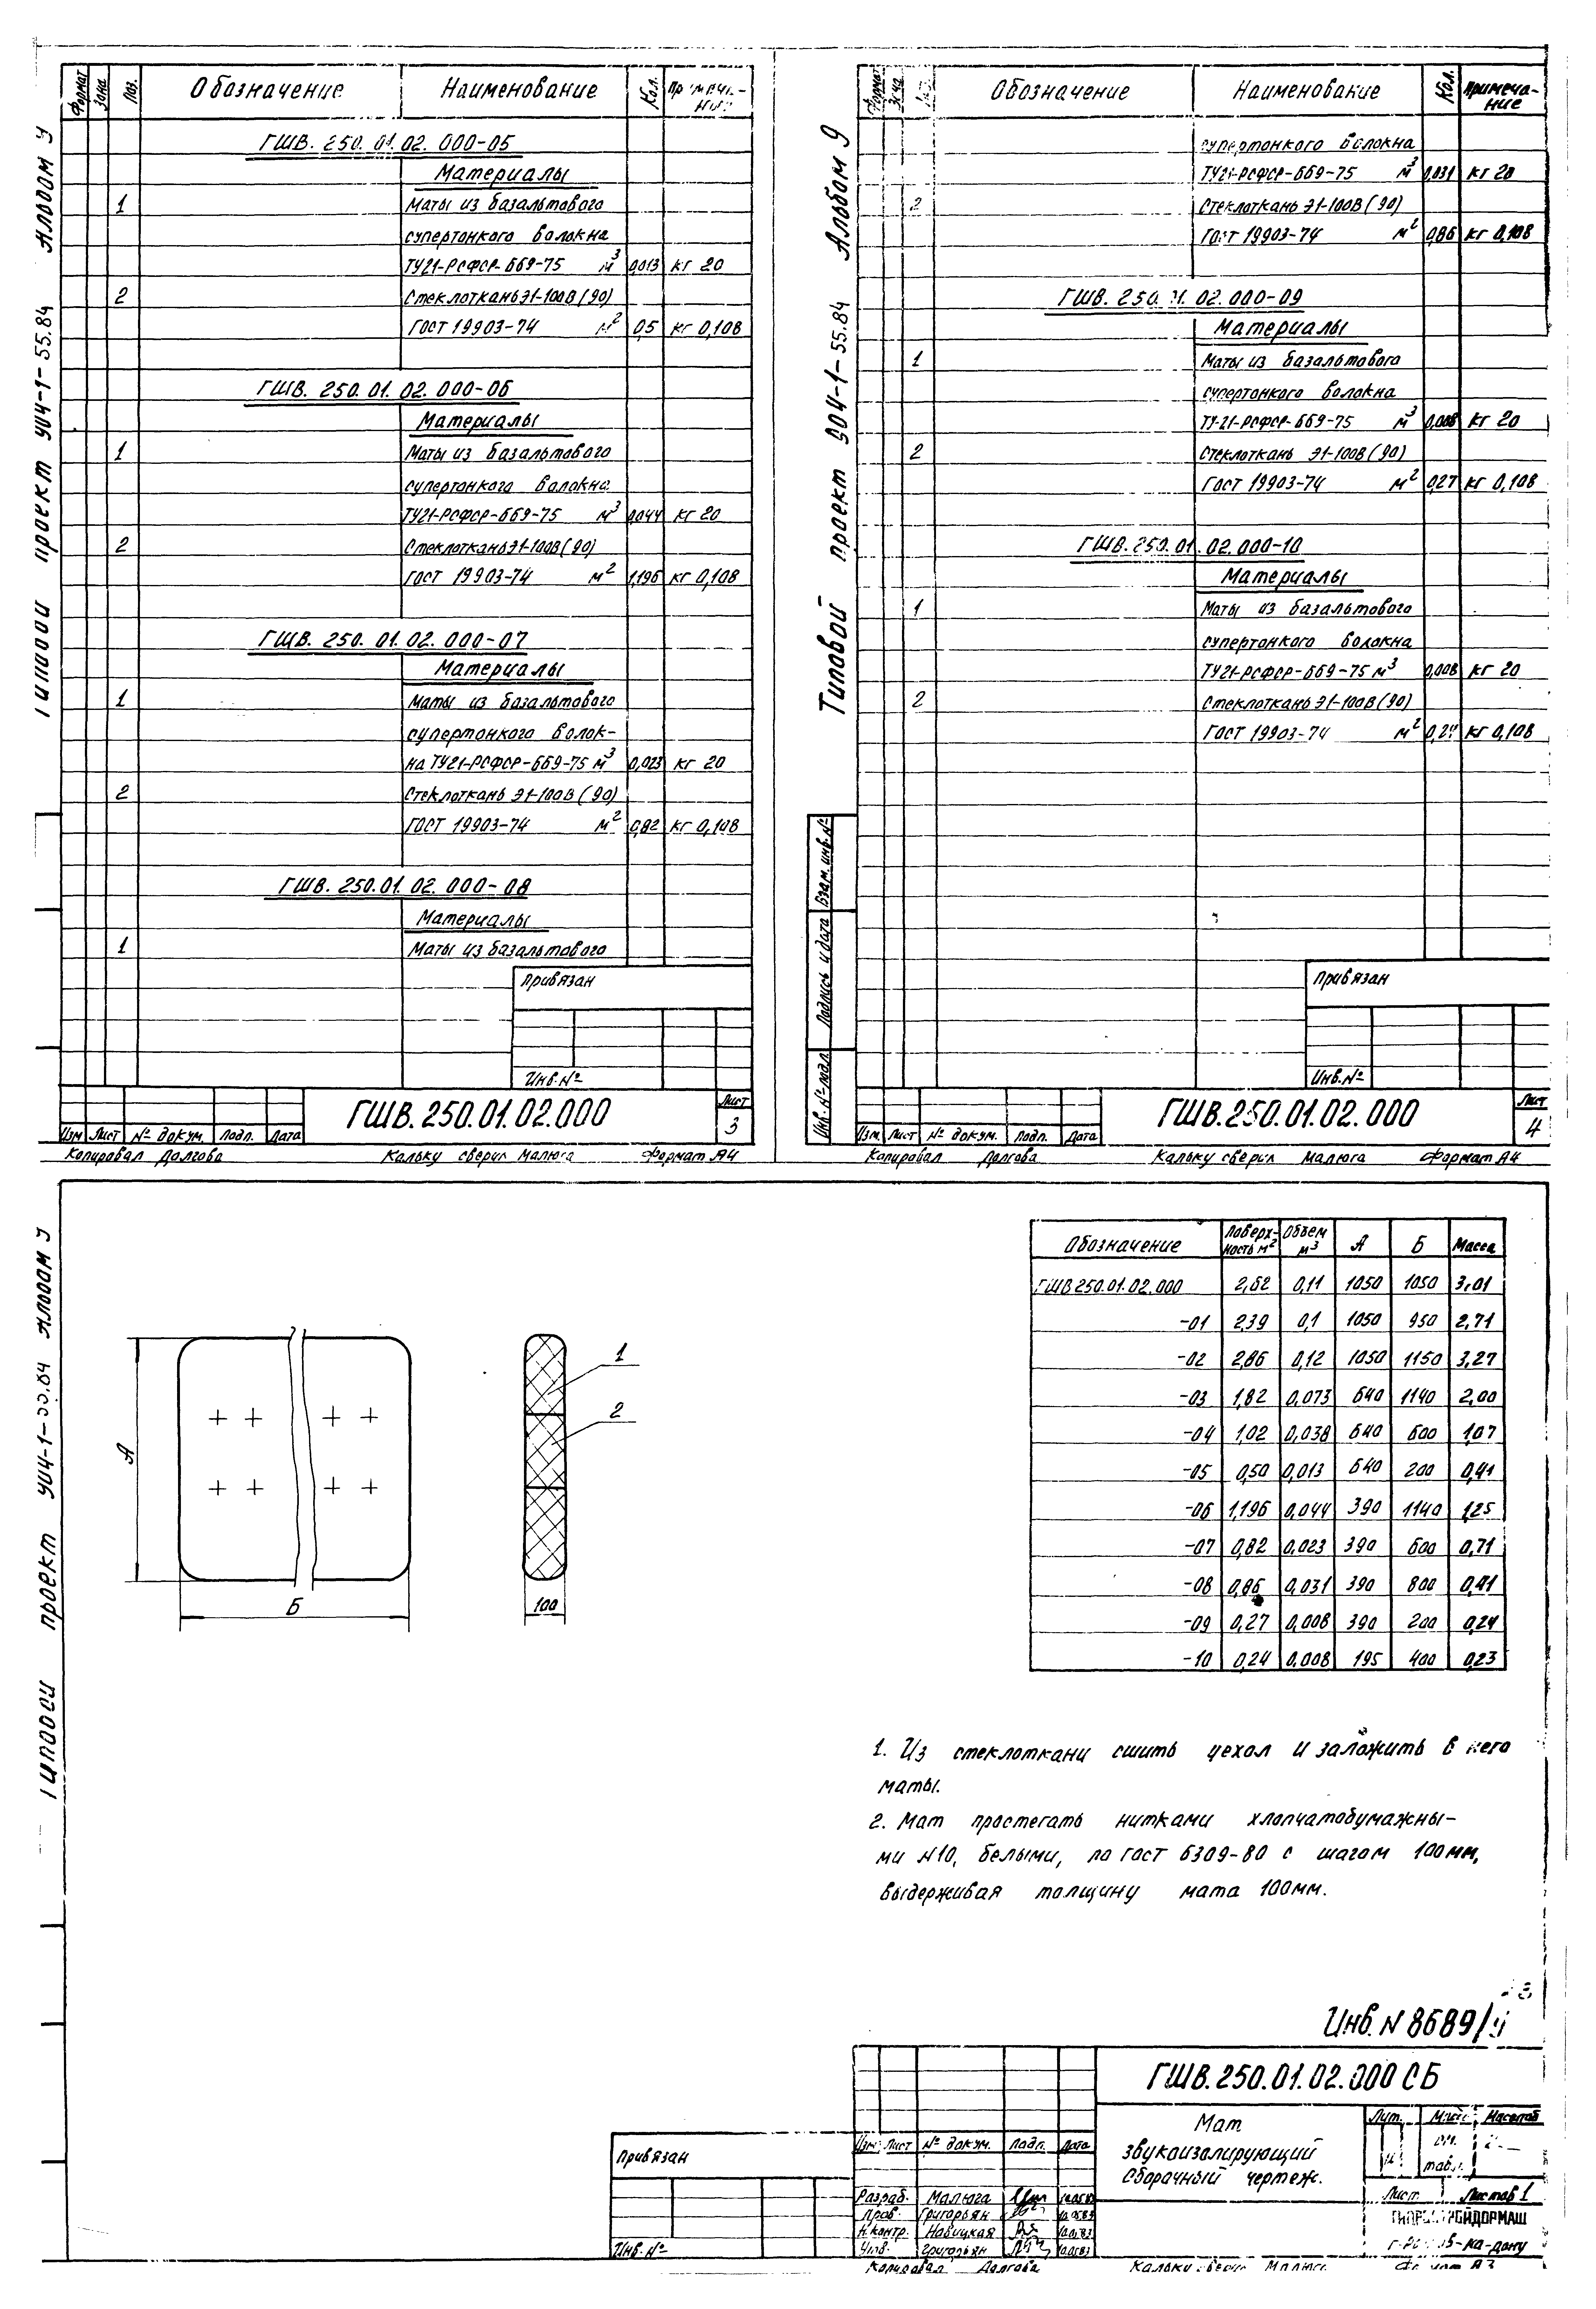 Альбом 9
проект 904-1-55.84
Формат Зона Поз. Обозначение Наименование Кол.
ГШВ. 250. 01. 02. 000-05
Материалы
1 Маты из базальтового
супертонкого волокна
ТУ21-РСФСР-669-75 м³ 0,013 кг 20
2 Стеклоткань Э1-100В (90)
ГОСТ 19903-74 м² 0,5 кг 0,108
ГШВ. 250. 01. 02. 000-06
Материалы
1 Маты из базальтового
супертонкого волокна
ТУ21-РСФСР-669-75 м³ 0,044 кг 20
2 Стеклоткань Э1-100В (90)
ГОСТ 19903-74 м² 1,196 кг 0,108
ГШВ. 250. 01. 02. 000-07
Материалы
1 Маты из базальтового
супертонкого волок-
на ТУ21-РСФСР-669-75 м³ 0,023 кг 20
2 Стеклоткань Э1-100В (90)
ГОСТ 19903-74 м² 0,82 кг 0,108
ГШВ. 250. 01. 02. 000-08
Материалы
1 Маты из базальтового
Привязан
Инв. №
Изм Лист № докум. Подп. Дата
ГШВ. 250.01.02.000
Лист
3
Копировал Долгова Кальку сверил Малюга Формат А4
Типовой проект 904-1-55.84 Альбом 9
Формат Зона Обозначение Наименование Кол. Примеча-
ние
супертонкого волокна
ТУ21-РСФСР-669-75 м³ 0,031 кг 20
2 Стеклоткань Э1-100В (90)
ГОСТ 19903-74 м² 0,86 кг 0,108
ГШВ. 250. 01. 02. 000-09
Материалы
1 Маты из базальтового
супертонкого волокна
ТУ-21-РСФСР-669-75 м³ 0,008 кг 20
2 Стеклоткань Э1-100В (90)
ГОСТ 19903-74 м² 0,27 кг 0,108
ГШВ. 250. 01. 02. 000-10
Материалы
1 Маты из базальтового
супертонкого волокна
ТУ21-РСФСР-669-75 м³ 0,008 кг 20
2 Стеклоткань Э1-100В (90)
ГОСТ 19903-74 м² 0,24 кг 0,108
Взам. инв. №
Подпись и дата
Инв. № подл.
Привязан
Инв. №
Изм. Лист № докум. Подп. Дата
ГШВ. 250.01.02.000
Лист
4
Копировал Долгова Кальку сверил Малюга Формат А4
проект 904-1-55.84 Альбом 9
Обозначение Поверх-
ность м² Объем
м³ А Б Масса
ГШВ 250.01.02.000 2,62 0,11 1050 1050 3,01
-01 2,39 0,1 1050 950 2,71
-02 2,86 0,12 1050 1150 3,27
-03 1,82 0,073 640 1140 2,00
-04 1,02 0,038 640 600 1,07
-05 0,50 0,013 640 200 0,41
-06 1,196 0,044 390 1140 1,25
-07 0,82 0,023 390 600 0,71
-08 0,86 0,031 390 800 0,41
-09 0,27 0,008 390 200 0,24
-10 0,24 0.008 195 400 0,23
А
Б
1
2
100
1. Из стеклоткани сшить чехол и заложить в него
маты.
2. Мат простегать нитками хлопчатобумажны-
ми N10, белыми, по ГОСТ 6309-80 с шагом 100мм,
выдерживая толщину мата 100мм.
Инв. N 8689/
ГШВ. 250.01.02.000 СБ
Мат
звукоизолирующий
Сборочный чертеж.
Лит. Масса Масштаб
см.
табл.
Лист Листов 1
ГИПРОСТРОЙДОРМАШ
г. Ростов-на-Дону
Изм. Лист № докум. Подп. Дата
Разраб. Малюга
Пров. Григорьян
Н.контр. Навицкая
Утв. Григорьян
Привязан
Инв. №
Копировал Долгова Кальку сверил Малюга Формат А3